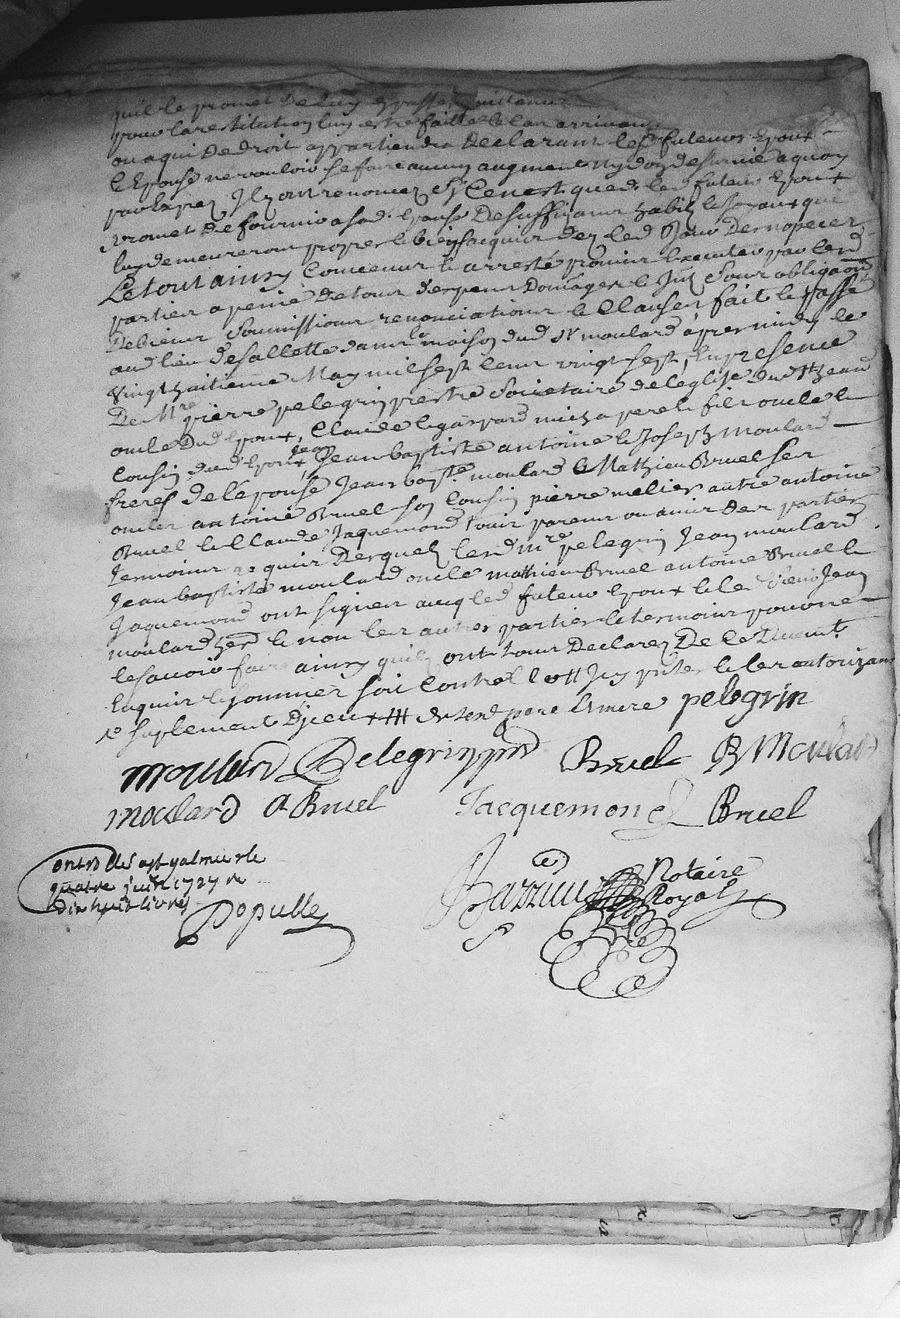 quil le promet de luy
pour la restitution luy estre faitte le cas arrivant
ou a qui de droit appartiendra declarant lesd futeurs Epoux
lEpouse ne vouloir se faire aucun augment ny don de survie a quoy
par Exprez Ils ont renoncez Sy Cenest que led futeur Epoux
promet de fournir a sad Epouse de suffizans habits et Joyaux que
luy demeureront propres
Le tout ainsy Convenu et arresté promis executer par lesd
parties a peine de tous despens domages et
de biens soumissions renonciations et Clauses fait et passé
aud lieu de sallette dans la maison dud Sr moulard apres midy le
vingt huitieme May mil sept cens vingt sept, En presence
De Mre pierre pelegrin prestre societaire de leglize dud St Jean
oncle dud Epoux, Claude et gaspard pere et fils oncle et
Cousin dud Epoux, Jean Jean baptiste antoine et Joseph moulard
freres de lEpouse Jean bapte moulard et Mathieu Bruel ses
oncles antoine Bruel son Cousin pierre melier autre antoine
Bruel et Claude Jaquemond tous parens ou amis des parties
Tesmoins requis desquels lesd mre pelegrin Jean moulard
Jean baptiste moulard oncle mathieu Bruel antoine Bruel et
Jaquemond ont signez avec led futeur Epoux et le Jean
moulard et non les autres parties et temoins pour ne
le savoir faire ainsy quils ont tous Declarez De ce
Enquis et sommes soit Controllé
le suplement pere et mere pelegrin
moulard Pelegrin ptre Bruel B Moulard
moulard A Bruel Jacquemond Bruel
quatre juin 1727 re
dixhuit livres
Populle
Notaire
Royal